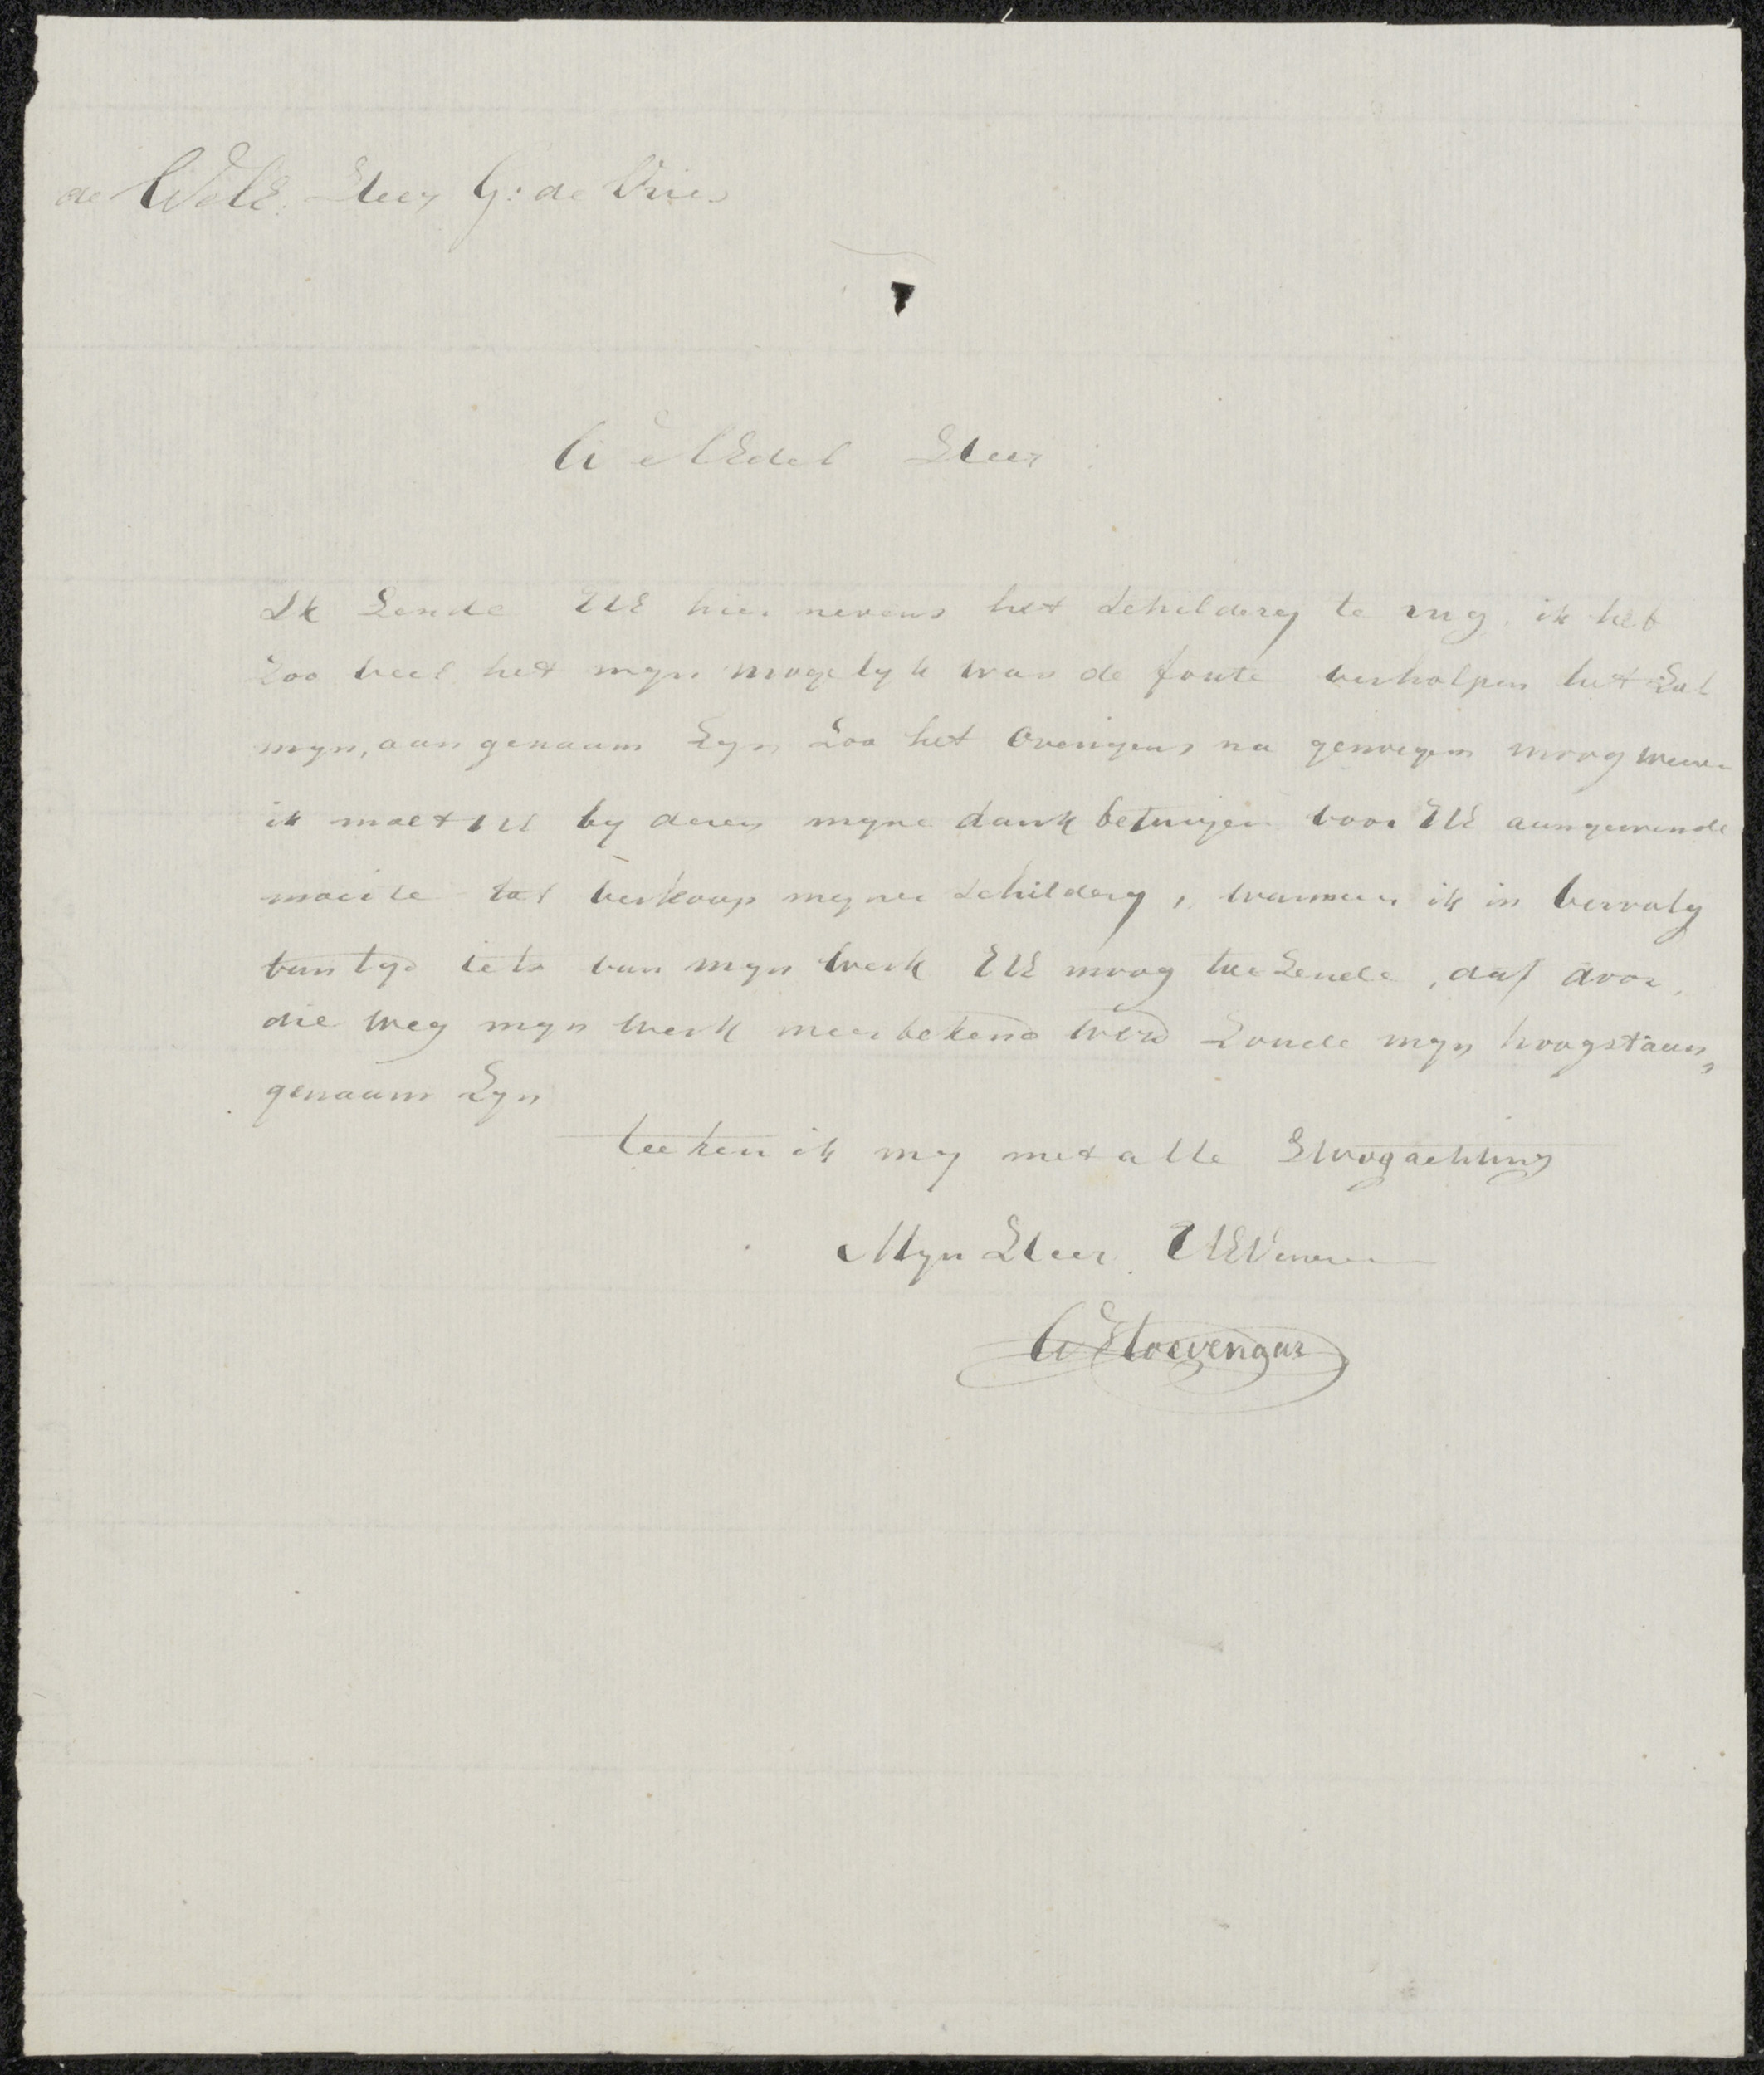 de WelE: Heer G: de Vries
WelEdel Heer
Ik Zende UE hier nevens het Schildery te rug. ik heb
Zoo veel het myn mogelyk was de foute verholpen het Zal
myn, aangenaam Zyn Zoo het overigens na genoegen moog weezen
ik moet UE by dezen myne dank betuigen voor UE aangewende
moeite tot verkoop myner Schildery, wanneer ik in vervolg
van tyd iets van myn werk UE moog toe Zende, dat door
die weg myn werk meer bekend wird Zoude myn hoogst aan,
genaam Zyn
teeken ik my met alle Hoogachting
Myn Heer. UE
W Hoevenaar